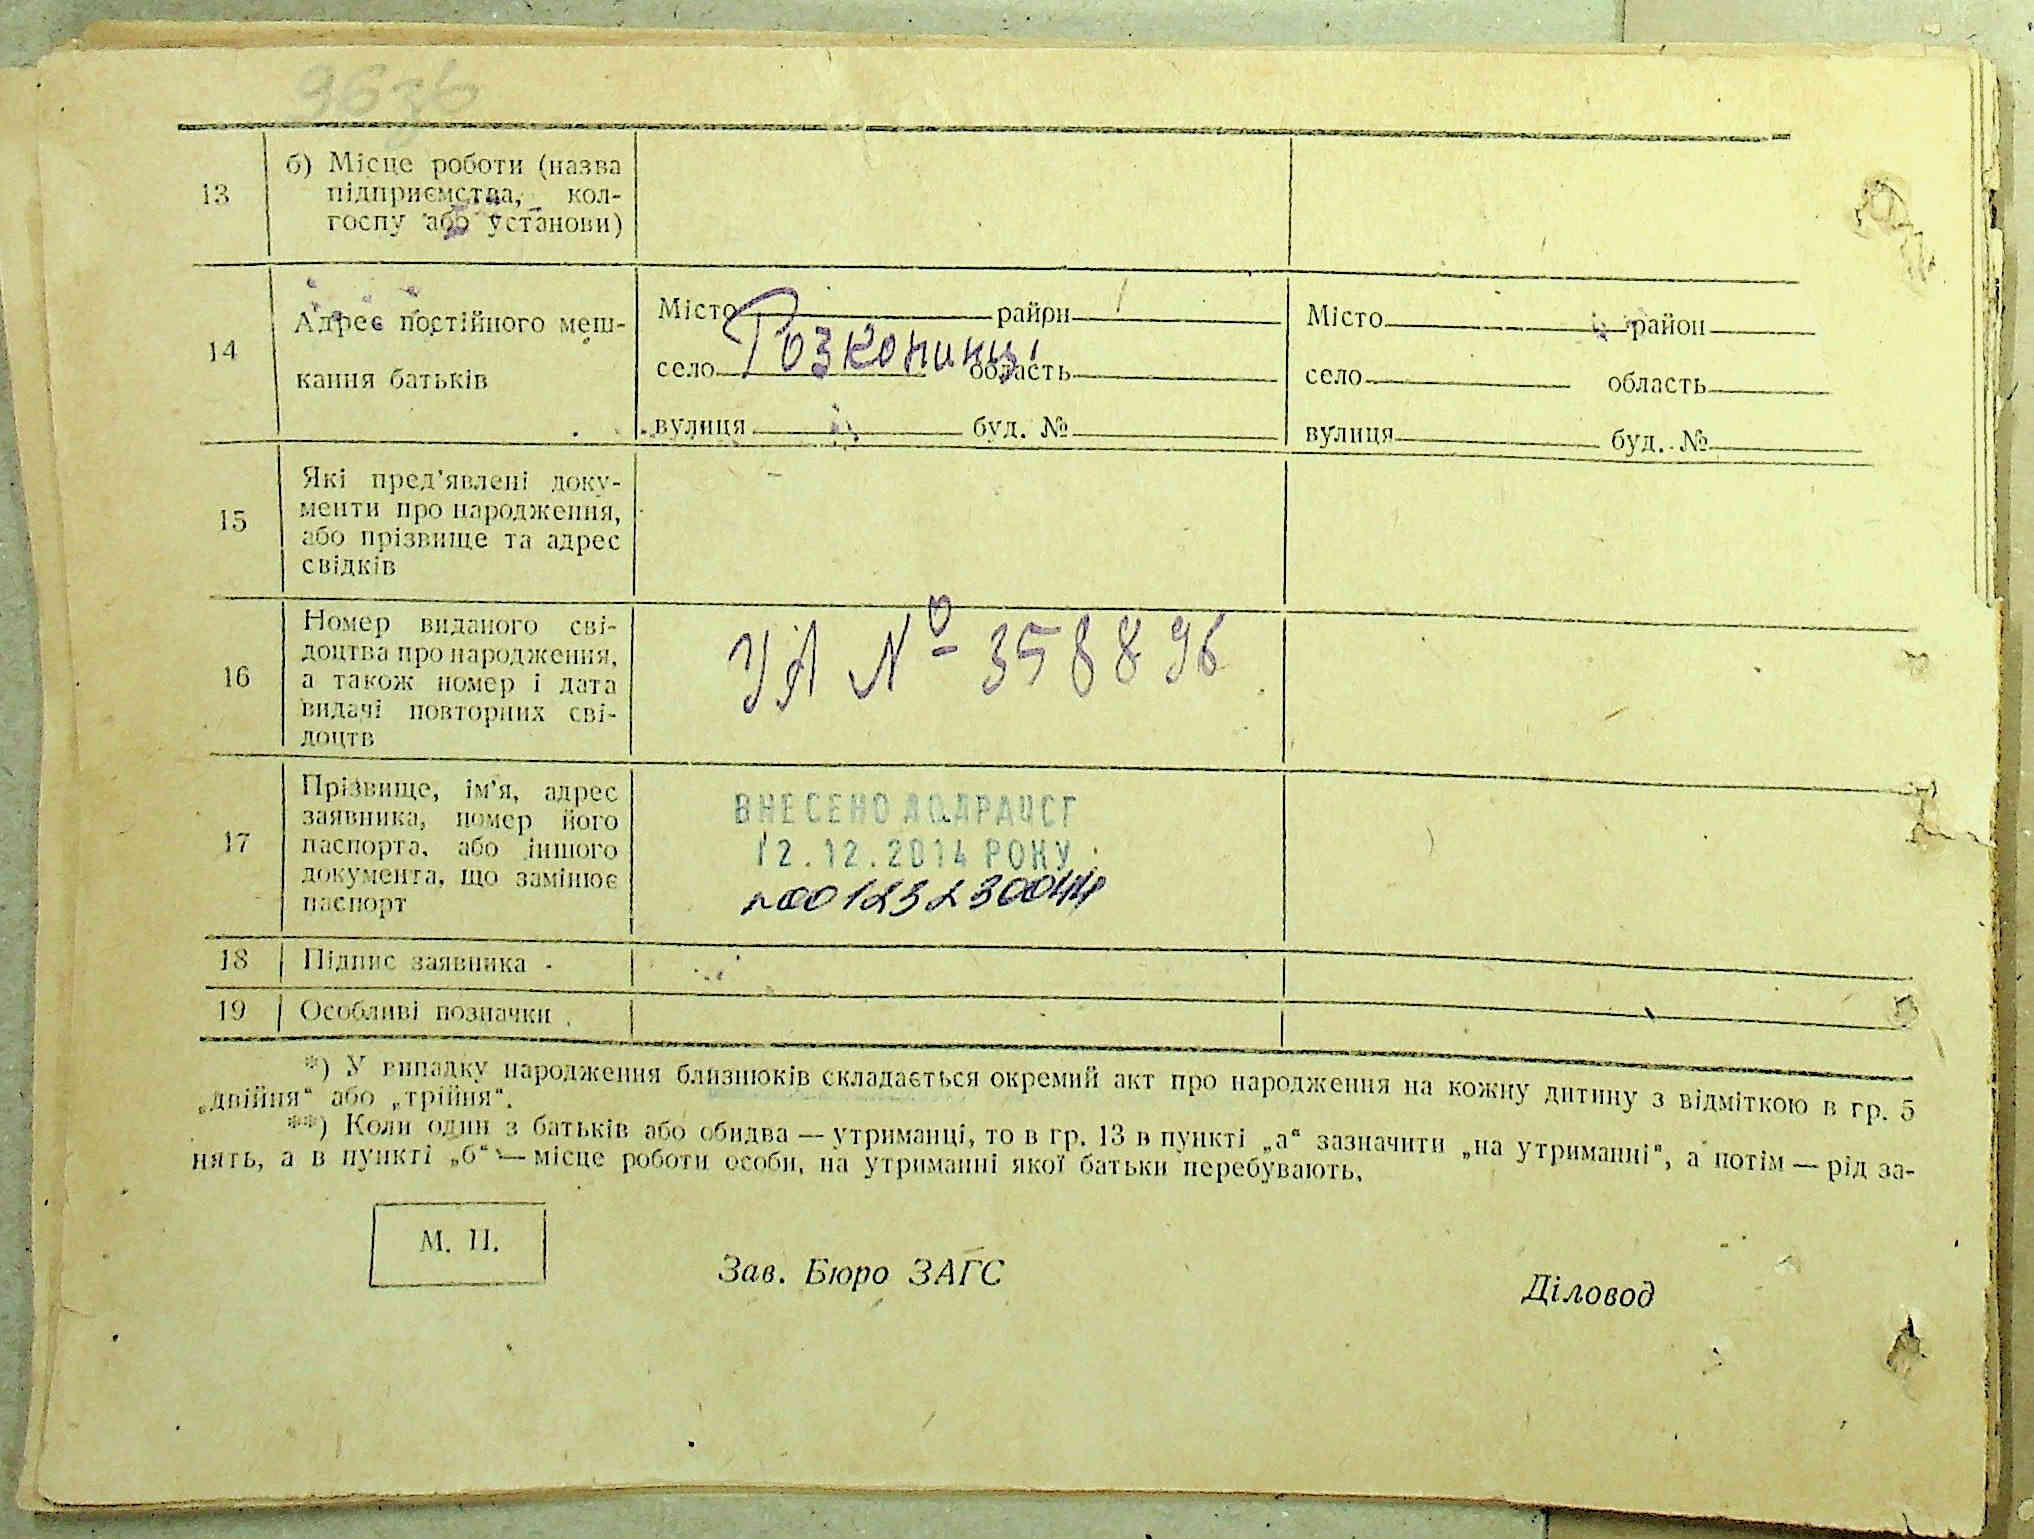 963б
13
б) Місце роботи (назва
підприємства, кол-
госпу або установи)
14
Адрес постійного меш-
кання батьків
Місто район
село Розкопинці область
вулиця буд. №
Місто район
село область
вулиця буд. №
15
Які пред'явлені доку-
менти про народження,
або прізвище та адрес
свідків
16
Номер виданого сві-
доцтва про народження,
а також номер і дата
видачі повторних сві-
доцтв
УА № 358896
17
Прізвище, ім'я, адрес
заявника, номер його
паспорта, або іншого
документа, що замінює
паспорт
ВНЕСЕНО ДО ДРАЦСГ
12.12.2014 РОКУ
№00123230044
18
Підпис заявника
19
Особливі позначки
*) У випадку народження близнюків складається окремий акт про народження на кожну дитину з відміткою в гр. 5
„двійня“ або „трійня“.
**) Коли один з батьків або обидва — утриманці, то в гр. 13 в пункті „а“ зазначити „на утриманні“, а потім — рід за-
нять, а в пункті „б“ — місце роботи особи, на утриманні якої батьки перебувають.
М. П.
Зав. Бюро ЗАГС
Діловод